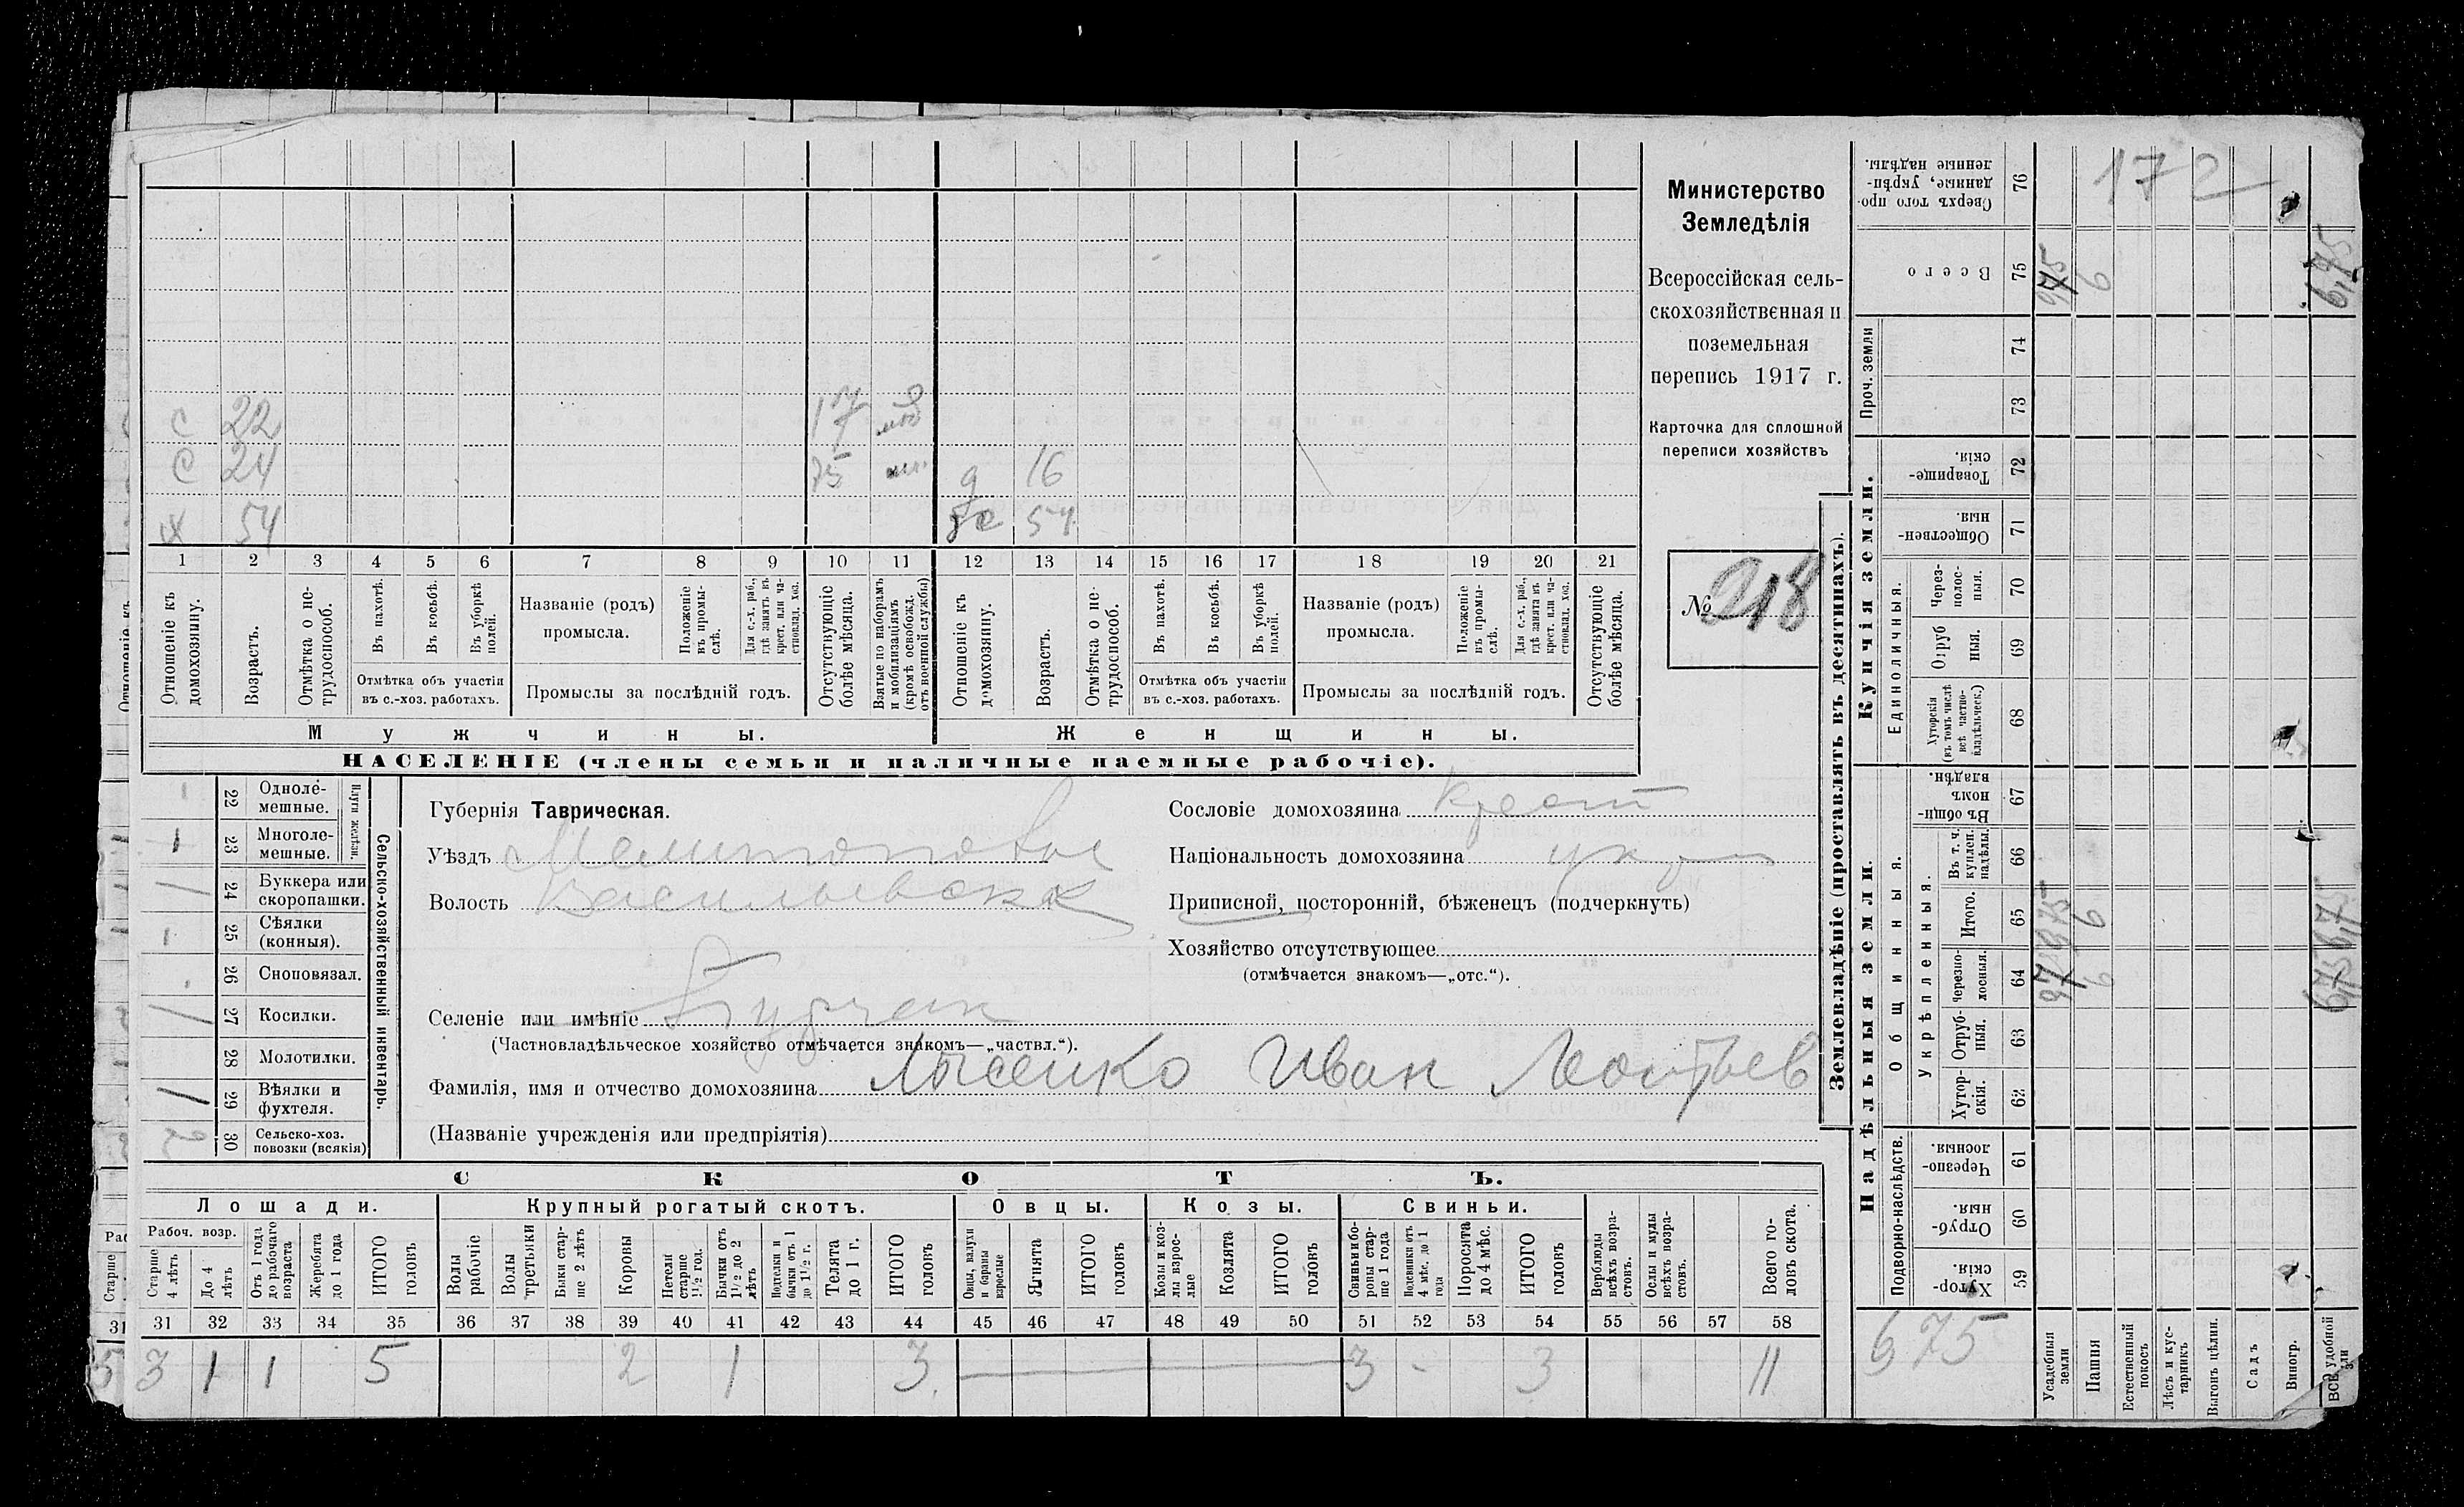 Министерство
Земледѣлія
Всероссійская сель-
скохозяйственная и
поземельная
перепись 1917 г.
Карточка для сплошной
переписи хозяйствъ
№ 218
с 22 17
с 24 75 16
х 54 54
1 2 3 4 5 6 7 8 9 10 11 12 13 14 15 16 17 18 19 20 21
Отношеніе къ домохозяину.
Возрастъ.
Отмѣтка о не-трудоспособ.
Въ пахотѣ.
Въ косьбѣ.
Въ уборкѣ полей.
Отмѣтка объ участіи
въ с.-хоз. работахъ.
Названіе (родъ)
промысла.
Положеніе въ промы-слѣ.
Для с.-х. раб., гдѣ занятъ въ крест. или ча-стновлад. хоз.
Промыслы за послѣдній годъ.
Отсутствующіе болѣе мѣсяца.
Взятые по наборамъ и мобилизаціямъ (кромѣ освобожд. отъ военной службы)
Отношеніе къ домохозяину.
Возрастъ.
Отмѣтка о не-трудоспособ.
Въ пахотѣ.
Въ косьбѣ.
Въ уборкѣ полей.
Отмѣтка объ участіи
въ с.-хоз. работахъ.
Названіе (родъ)
промысла.
Положеніе въ промы-слѣ.
Для с.-х. раб., гдѣ занята въ крест. или ча-стновлад. хоз.
Промыслы за послѣдній годъ.
Отсутствующіе болѣе мѣсяца.
Мужчины. Женщины.
НАСЕЛЕНІЕ (члены семьи и наличные наемные рабочіе).
Сельско-хозяйственный инвентарь.
Плуги желѣзн.
22 Одноле-мешные.
1 23 Многоле-мешные.
24 Буккера или скоропашки.
1 25 Сѣялки (конныя).
26 Сноповязал.
27 Косилки.
28 Молотилки.
1 29 Вѣялки и фухтеля.
2 30 Сельско-хоз. повозки (всякія)
Губернія Таврическая.
Уѣздъ Мелитопольс
Волость Васильевска
Селеніе или имѣніе
(Частновладѣльческое хозяйство отмѣчается знакомъ—„частвл.“).
Фамилія, имя и отчество домохозяина Лысенко Иван Леонтьев
(Названіе учрежденія или предпріятія)
Сословіе домохозяина крест
Національность домохозяина укр
Приписной, посторонній, бѣженецъ (подчеркнуть)
Хозяйство отсутствующее
(отмѣчается знакомъ—„отс.“).
СКОТЪ.
Лошади. Крупный рогатый скотъ. Овцы. Козы. Свиньи.
Рабоч. возр.
Старше 4 лѣтъ
До 4 лѣтъ
Отъ 1 года до рабочаго возраста
Жеребята до 1 года
ИТОГО головъ
Волы рабочіе
Волы третьяки
Быки стар-ше 2 лѣтъ
Коровы
Нетели старше 1½ год.
Бычки отъ 1½ до 2 лѣтъ
Подтелки и бычки отъ 1 до 1½ г.
Телята до 1 г.
ИТОГО головъ
Овцы, валухи и бараны взрослые
Ягнята
ИТОГО головъ
Козы и коз-лы взрос-лые
Козлята
ИТОГО головъ
Свиньи и бо-ровы стар-ше 1 года
Подсвинки отъ 4 мѣс. до 1 года
Поросята до 4 мѣс.
ИТОГО головъ
Верблюды всѣхъ возра-стовъ.
Ослы и мулы всѣхъ возра-стовъ.
Всего го-ловъ скота.
31 32 33 34 35 36 37 38 39 40 41 42 43 44 45 46 47 48 49 50 51 52 53 54 55 56 57 58
3 1 1 5 2 1 3 3 - 3 11
Землевладѣніе (проставлять въ десятинахъ).
172
Сверхъ того про-данные, укрѣп-ленные надѣлы. 76
Всего 75 6 6,75
Проч. земли 74 73
Купчія земли.
Товарище-скія. 72
Обществен-ныя. 71
Единоличныя.
Через-полос-ныя. 70
Отруб-ныя. 69
Хуторскія (въ томъ числѣ всѣ частно-владѣльческ.) 68
Надѣльныя земли.
Общинныя.
Въ общи-номъ владѣн. 67
Укрѣпленныя.
Въ т. ч. куплен. надѣлы. 66
Итого. 65 6 6,75
Черезпо-лосныя. 64 6 6,75
Отруб-ныя. 63
Хутор-скія. 62
Подворно-наслѣдств.
Черезпо-лосныя. 61
Отруб-ныя. 60
Хутор-скія. 59
675
Усадебныя земли
Пашня
Естественный покосъ
Лѣсъ и кус-тарникъ
Выгонъ цѣлин.
Садъ
Виногр.